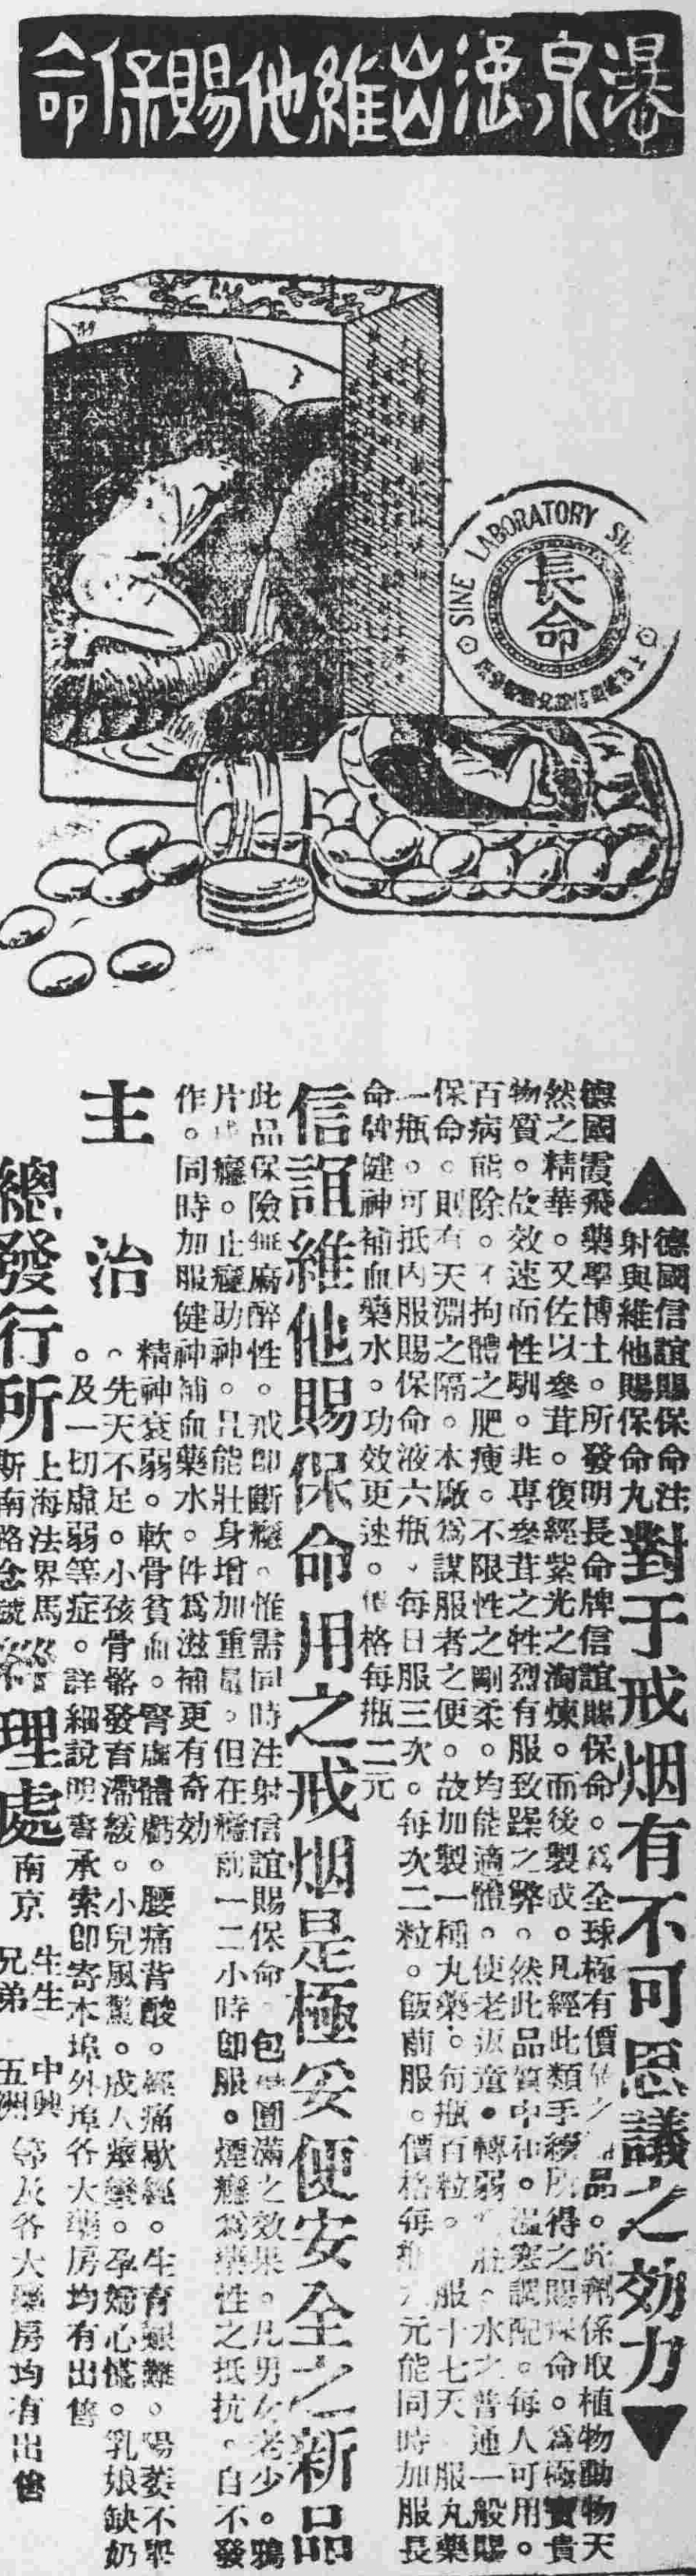 SINE LABORATORY
長命
▲德國信誼賜保命注射與維他賜保命丸對于戒烟有不可思議之効力▼
德國霞飛藥學博士。所發明長命牌信誼賜保命。為全球極有價 之 品。此劑係取植物動物天
然之精華。又佐以參茸。復經紫光之淘煉。而後製成。凡經此類手續所得之賜保命。為極寶貴
物質。故效速而性馴。非專參茸之性烈有服致躁之弊。然此品質中和。溫寒調配。每人可用。
百病能除。不拘體之肥瘦。不限性之剛柔。均能適體。使老返童。轉弱 壯。水之普通一般賜
保命。則有天淵之隔。本廠為謀服者之便。故加製一種丸藥。每瓶百粒。 服十七天 服丸藥
一瓶。可抵内服賜保命液六瓶。每日服三次。每次二粒。飯前服。價格每瓶 元能同時加服長
命牌健神補血藥水。功效更速。價格每瓶二元
信誼維他賜保命用之戒烟是極妥便安全之新品
此品保險無腐醉性。戒卽斷癮。惟需同時注射信誼賜保命 包 圓滿之效果。凡男女老少。鴉
片 癮。止癮助神。且能壯身增加重量。但在癮前一二小時卽服。煙癮為藥性之抵抗。自不發
作。同時加服健神補血藥水。件為滋補更有奇効
主治
精神衰弱。軟骨貧血。腎虛體虧。腰痛背酸。經痛歇經。生育艱難。陽萎不舉
。先天不足。小孩骨骼發育濡緩。小兒風驚。成人癆 。孕婦心慌。乳娘缺奶
。及一切虛弱等症。詳細說明書承索卽寄本埠外埠各大藥房均有出售
總發行所 上海法界馬斯南路念號
經理處 南京 生生兄弟 中興五洲 等及各大藥房均有出售